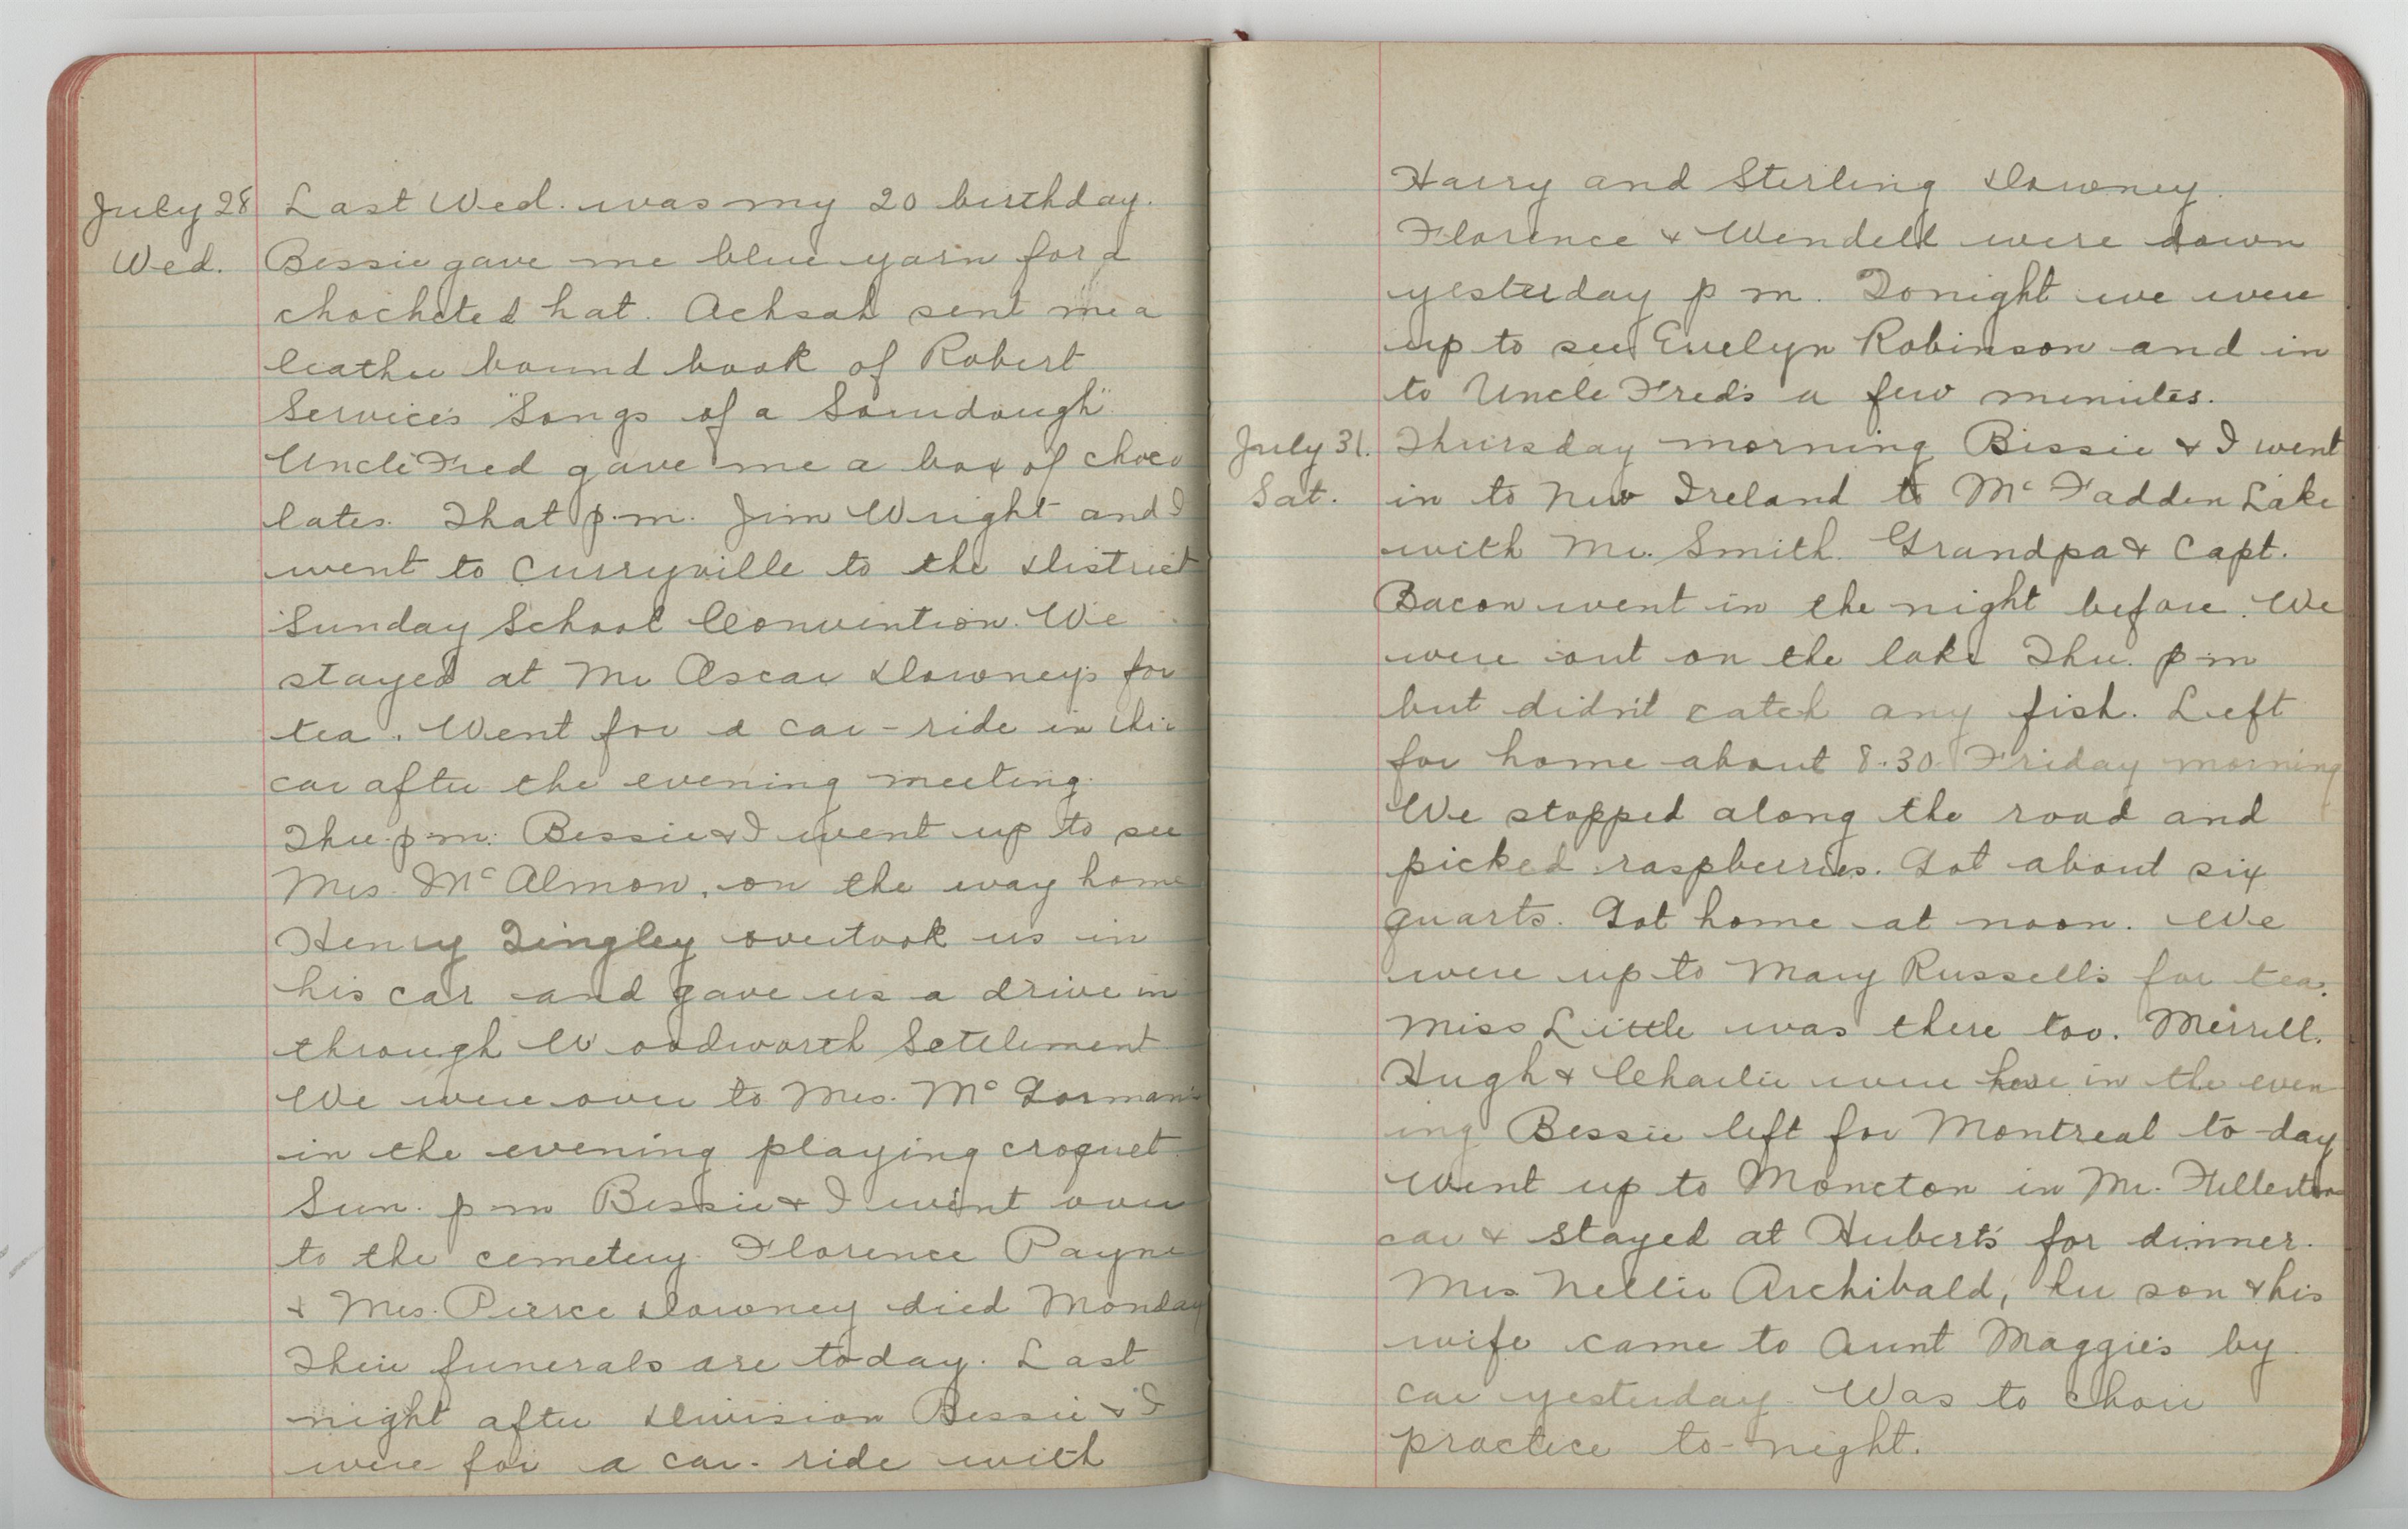 July 28 Last Wed. was my 20 birthday.
Wed. Bessie gave me blue yarn for a
chocheted hat. Achsah sent me a
leather bound book of Robert
Service's "Songs of a Sourdough"
Uncle Fred gave me a box of choco
lates. That p.m. Jim Wright and I
went to Curryville to the District
Sunday School Convention. We
stayed at Mr Oscar Downey's for
tea. Went for a car-ride in their
car after the evening meeting.
Thu. p.m. Bessie & I went up to see
Mrs. McAlmon, on the way home
Henry Tingley overtook us in
his car and gave us a drive in
through Woodworth Settlement
We were over to Mrs. McGorman's
in the evening playing croquet.
Sun. p m Bessie & I went over
to the cemetery. Florence Payne
& Mrs. Pierce Downey died Monday
Their funerals are today. Last
night after Division Bessie & I
were for a car-ride with
Harry and Sterling Downey.
Florence & Wendell were down
yesterday p m. Tonight we were
up to see Evelyn Robinson and in
to Uncle Fred's a few minutes.
July 31. Thursday morning Bessie & I went
Sat. in to New Ireland to McFadden Lake
with Mr. Smith. Grandpa & Capt.
Bacon went in the night before. We
were out on the lake Thu. p m
but didn't catch any fish. Left
for home about 8.30 Friday morning
We stopped along the road and
picked raspberries. Got about six
quarts. Got home at noon. We
were up to Mary Russell's for tea.
Miss Little was there too. Merrill,
Hugh & Charlie were here in the even
ing Bessie left for Montreal to-day
Went up to Moncton in Mr. Fullerton's
car & stayed at Hubert's for dinner.
Mrs Nellie Archibald, her son & his
wife came to Aunt Maggie's by
car yesterday. Was to choir
practice to-night.